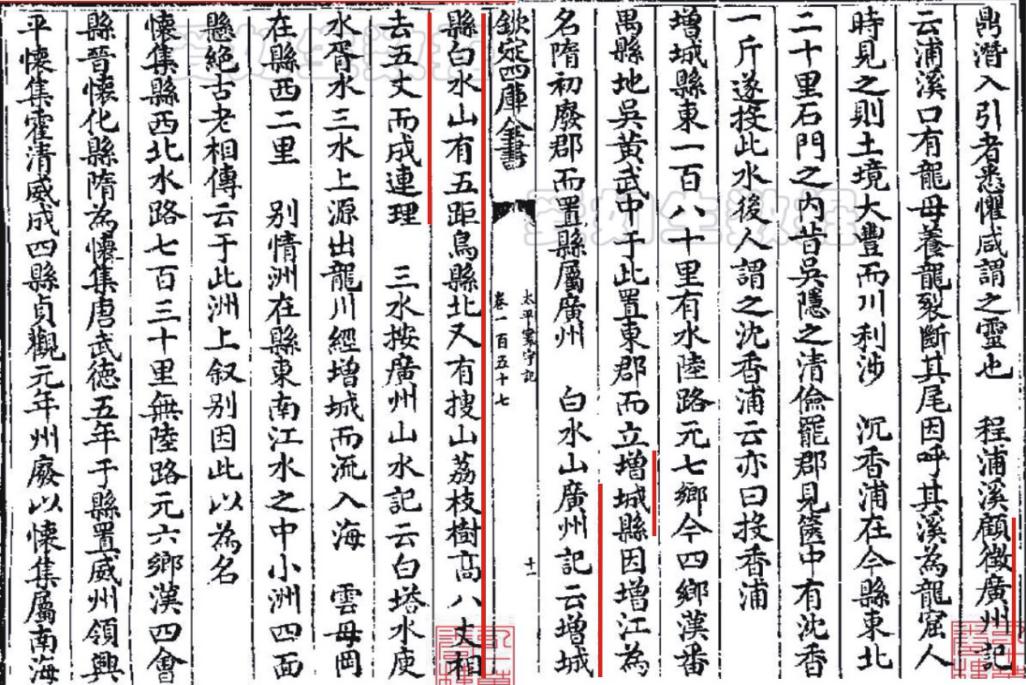 鼎潛入引者悉懼咸謂之靈也　程浦溪顧徵廣州記
云浦溪口有龍母養龍裂斷其尾因呼其溪為龍窟人
時見之則土境大豐而川利涉　沉香浦在今縣東北
二十里石門之內昔吳隱之清儉罷郡見篋中有沈香
一斤遂投此水後人謂之沈香浦云亦曰投香浦
增城縣東一百八十里有水陸路元七鄉今四鄉漢番
禺縣地吳黃武中于此置東郡而立增城縣因增江為
名隋初廢郡而置縣屬廣州　白水山廣州記云增城
欽定四庫全書
太平寰宇記
卷一百五十七
十一
縣白水山有五距鳥縣北又有搜山荔枝樹高八丈相
去五丈而成連理　三水按廣州山水記云白塔水庾
水胥水三水上源出龍川經增城而流入海　雲母岡
在縣西二里　別情洲在縣東南江水之中小洲四面
懸絕古老相傳云于此洲上叙别因此以為名
懷集縣西北水路七百三十里無陸路元六鄉漢四會
縣晉懷化縣隋為懷集唐武德五年于縣置威州領興
平懷集霍清威成四縣貞觀元年州廢以懷集屬南海